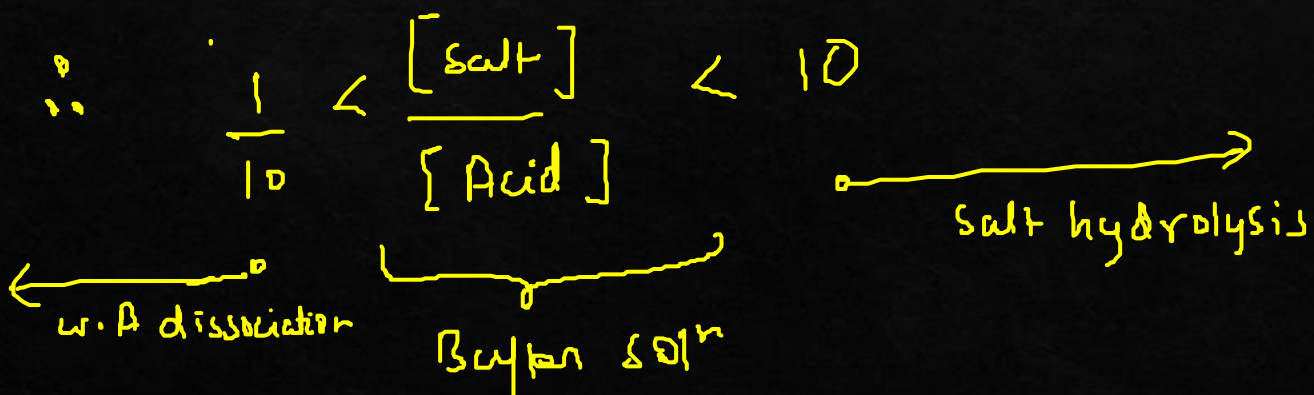 ∴ 1/10 < [Salt]/[Acid] < 10
salt hydrolysis
w.A dissociation
Buffer solⁿ